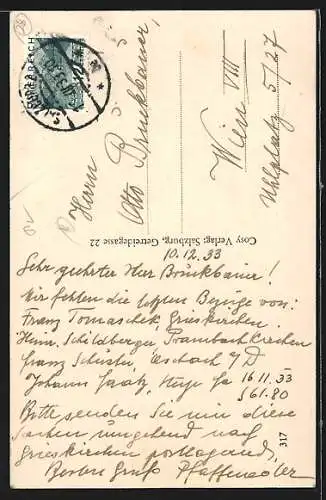 ÖSTERREICH
Herrn
Otto Brückbauer,
Wien VIII
Uhlplatz 5/27
Cosy Verlag: Salzburg, Getreidegasse 22
10.12.33
Sehr geehrter Herr Brückbauer!
Mir fehlen die letzten Bezüge von:
Franz Tomaschek, Grieskirchen.
Heinr. Schildberger Prambachkirchen
Franz Schuster, Aschach a/D
Johann 16.11.33
S 61.80
Bitte senden Sie mir diese
Sachen umgehend nach
Grieskirchen postlagernd,
Besten Gruß Pfaffeneder
317